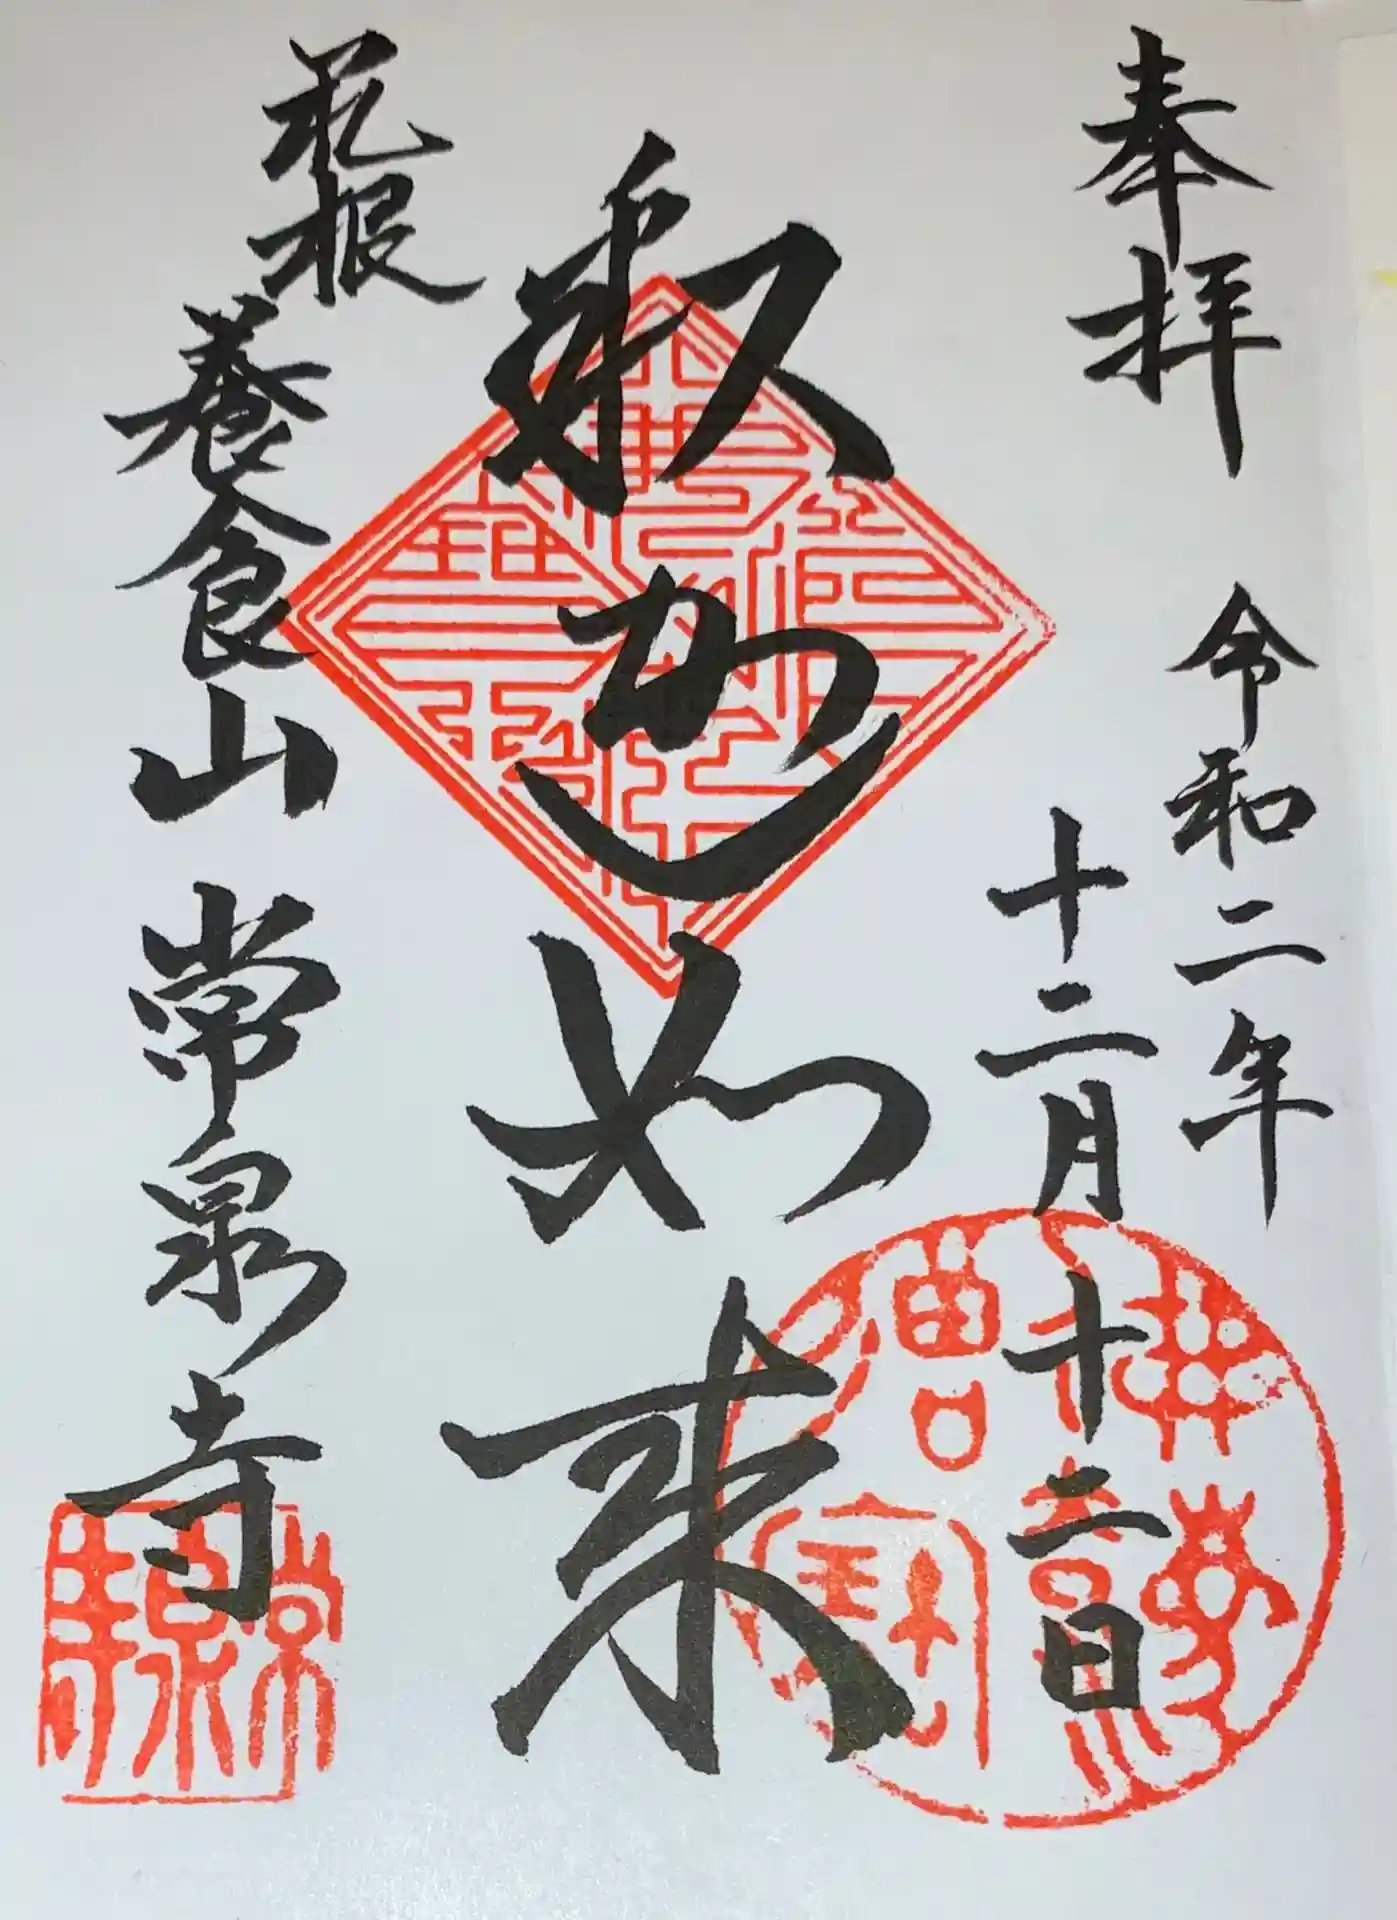 奉拝
令和二年
十二月十二日
釈迦如来
花根
養食山常泉寺
常泉寺